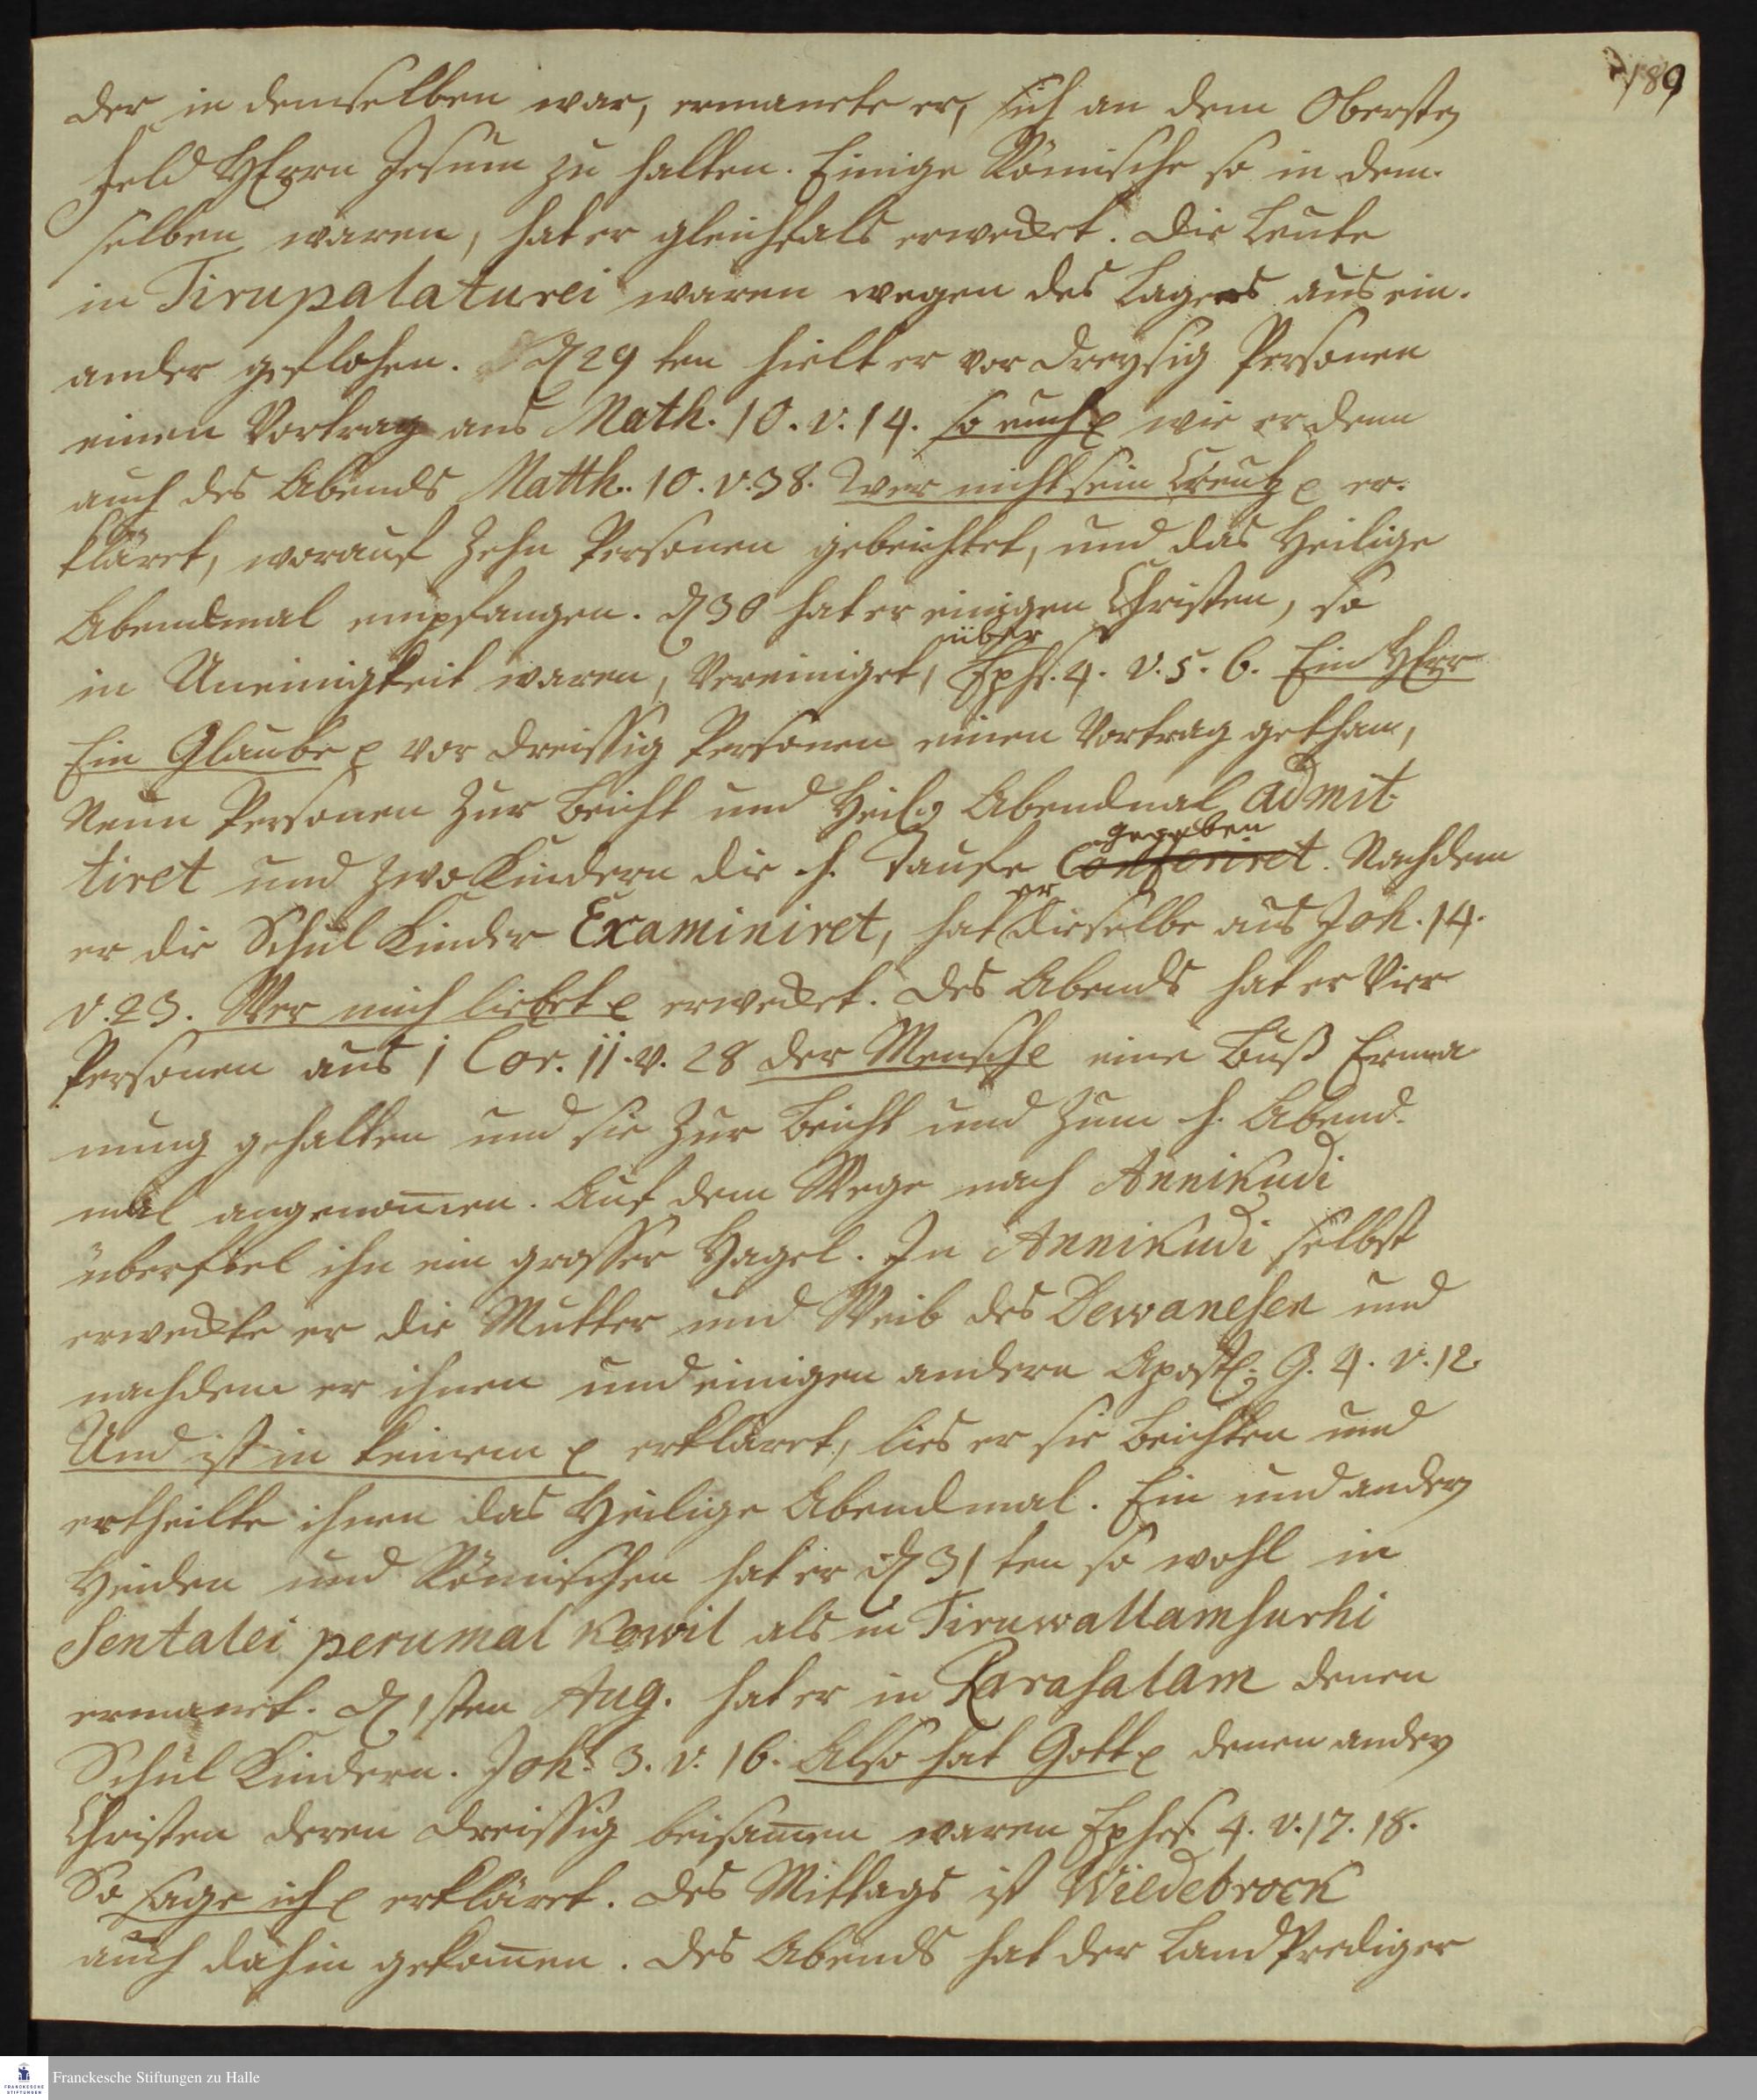 189
der in demselben war, ermanete er, sich an dem Obersten
Feld HErrn Jesum zu halten. Einige Römische so in dem-
selben waren, hat er gleichfals erwecket. Die Leute
in Tirupalaturei waren wegen des Lagers aus ein-
ander geflohen. d 29 ten hielt er vor dreysig Personen
einen Vortrag aus Math. 10. v. 14. so euch p wie er denn
auch des Abends Matth. 10. v. 38. Wer nicht sein Creutz p er-
kläret, worauf zehn Personen gebeichtet, und das Heilige
Abendmal empfangen. d 30 hat er einigen Christen, so
über
in Uneinigkeit waren, Vereiniget, Ephs. 4. v. 5. 6. Ein HErr
Ein Glaube p vor dreissig Personen einen Vortrag gethan,
Neun Personen zur Beicht und Heilg Abendmal admit-
gegeben
tiret und zwo Kindern die h. Taufe Conferiret. Nachdem
er
er die Schul Kinder Examiniret, hat dieselbe aus Joh. 14.
v. 23. Wer mich liebet p erwecket. des Abends hat er Vier
Personen aus 1 Cor. 11. v. 28 der Mensch p eine Buß Erma
nung gehalten und sie zur Beicht und zum h. Abend-
mal angenomen. Auf dem Wege nach Annikudi
überfiel ihn ein grosser Hagel. In Annikudi selbst
erweckte er die Mutter und Weib des Dewanesen und
nachdem er ihnen und einigen andern Apostl. G. 4. v. 12.
Und ist in keinem p erkläret, lies er sie Beichten und
ertheilte ihnen das Heilige Abendmal. Ein und andern
Heiden und Römischen hat er d 31 ten so wohl in
Sentalei perumal Kowil als in Tiruwallamsurhi
ermanet. d 1sten Aug. hat er in Karasalam denen
Schul Kindern. Joh. 3. v. 16. Also hat Gott p denen andern
Christen deren dreissig beisamen waren Ephes. 4. v. 17. 18.
So sage ich p erkläret. des Mittags ist Wildebrock
auch dahin gekomen. des Abends hat der Land Prediger
Franckesche Stiftungen zu Halle